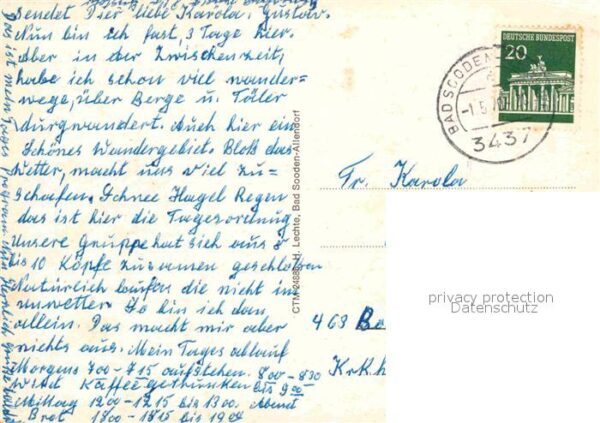 sendet Dier liebe Karola, Gustav.
Nun bin ich fast, 3 Tage hier.
Aber in der Zwischenzeit,
habe ich schon viel wander=
wege, über Berge u. Täler
durgwandert. Auch hier ein
Schönes Wandergebiet. Bloß das
Wetter, macht uns viel zu=
schaefen. Schnee Hagel Regen
das ist hier die Tagesordnung
Unsere Gruppe hat sich aus 8
bis 10 Köpfe zusamen geschloßen
Natürlich laufen die nicht im
unwetter. So bin ich dan
allein. Das macht mir aber
nichts aus. Mein Tages ablauf
Morgens 700-715 aufstehen. 800-830
wird Kaffee getrunken bis 900
Mittag 1200-1215 bis 1300. Abend
Brot 1800-1815 bis 1900
Das ist mein
CTM 24888 H. Lechte, Bad Sooden-Allendorf
DEUTSCHE BUNDESPOST
20
BAD SOODEN
3437
Fr. Karola
463 Bo
Krk.h
privacy protection
Datenschutz